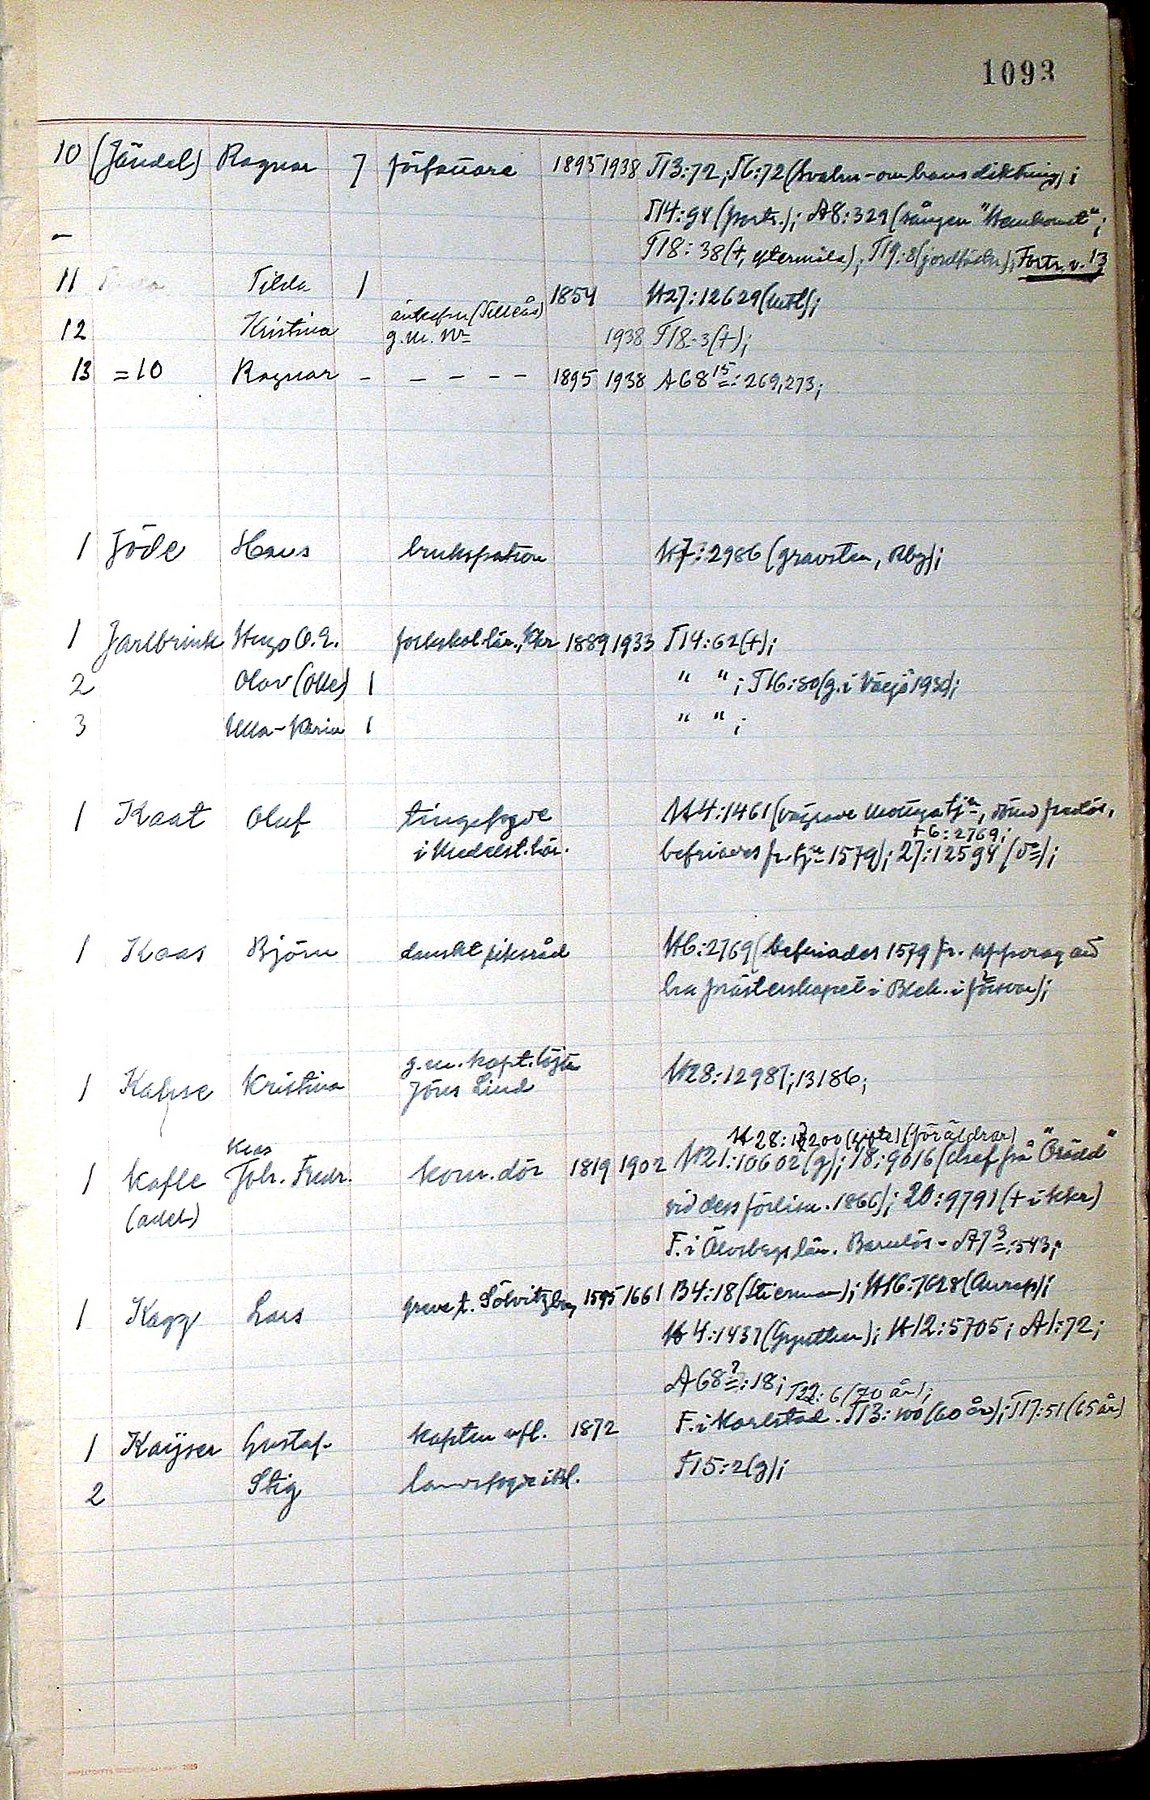 1093
10 (Jändel) Ragnar 7 författare 1895 1938 T13:72; T6:72 (Svalin - om hans diktning);
T14:94 (portr.); A8:329 (sången "Hemkomst";
T18:38 (†, eftermäle); T19:8 (jordfästn); Forts. n. 13
11 Tilda 1 1854
H27:12629 (
12 Kristina änkefru (Tellkås) g.m. N= 1938 T18:3 (†);
13 =10 Ragnar - - - - - - 1895 1938 A68 15=: 269, 273;
1 Jöde Hans brukspatron H7:2986 (gravsten, Rby);
1 Jarlbrink Hugo O.E. folkskol.lär., Kkr 1889 1933 T14:62 (†);
2 Olov (Olle) 1 " " ; T16:80 (g. i Växjö 1935);
3 Ulla-Karin 1 " " ;
1 Kaat Oluf tingsfogde
i Medelst. här.
H4:1461 (
+6:2769;
befriades fr. tj= 1579); 27:12594 (d=);
1 Kaas Björn danskt riksråd H6:2769 (befriades 1579 fr. uppdrag att
bra prästerskapet i Blek. i försvar);
g.m. kapt. löjtn
1 Kahse Kristina Jöns Lind H28:12987; 13186;
H28:13200 (gifte) (föräldrar)
Klas
1 Kafle Joh. Fredr. kom.dör 1819 1902 H21:10602 (g); 18:9016 (chef på "Orädd"
(adel) vid dess förlisn. 1866); 20:9791 († i Kkr)
F. i Älvsborgs län. Barnlös - A7 3=: 543;
1 Kagg Lars greve t. Sölvitzborg 1595 1661 B4:18 (Stierman); H16:7628 (Aurep);
H4:1437 (Gynther); H12:5705; A1:72;
A68 2=:18;
T22:6 (70 år);
1 Kaijser Gustaf kapten mfl. 1872 F. i Karlstad. T13:100 (60 år); T17:51 (65 år)
2 Stig landsfogde i Bl. T15:2 (g);